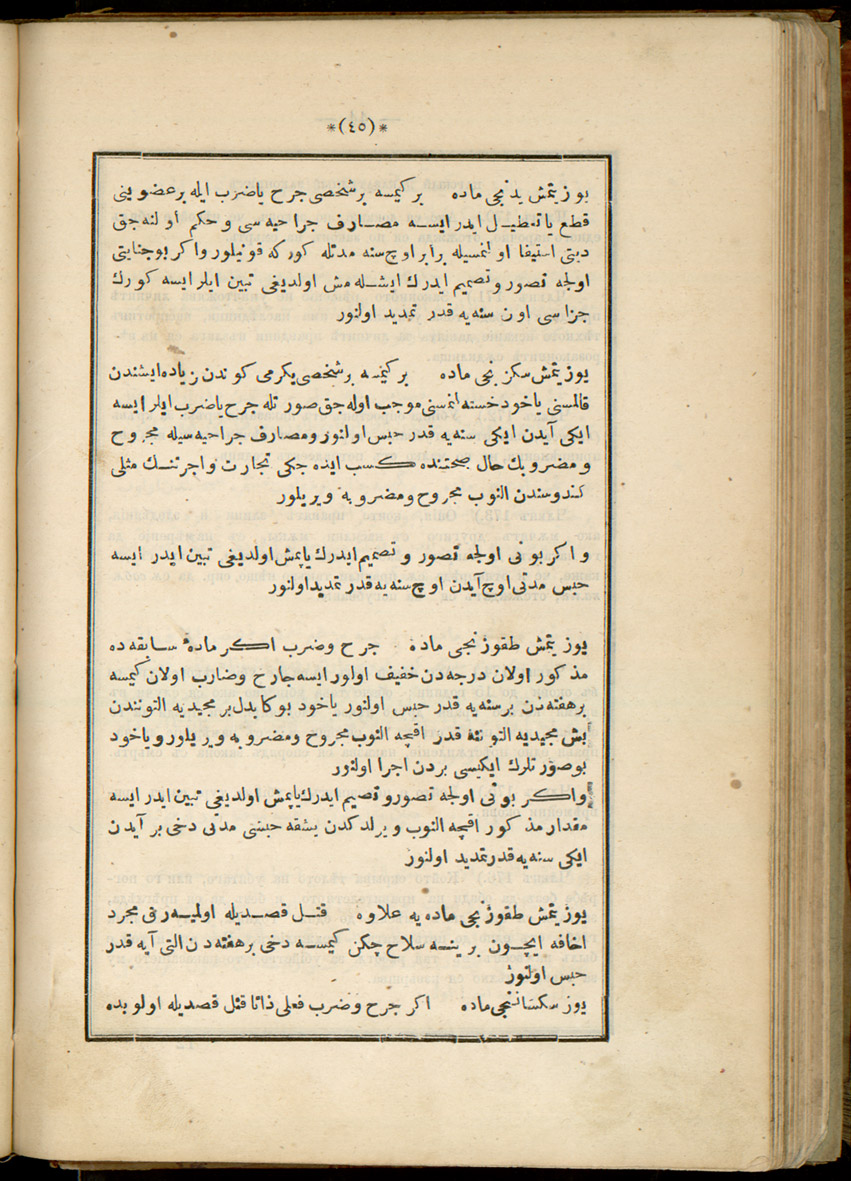 *(٤٥)*
یوز یتمش یدنجی ماده بر کیمسه بر شخصی جرح یا ضرب ایله بر عضوینی
قطع یا تعطیل ایدر ایسه مصارف جراحیه سی و حکم اولنه جق
دیتی استیفا اولنمسیله برابر اوچ سنه مدتله کورکه قونیلور واکر بو جنایتی
اولجه تصور و تصمیم ایدرك ایشله مش اولدیغی تبین ایلر ایسه کورك
جزاسی اون سنه یه قدر تمدید اولنور
یوز یتمش سکزنجی ماده بر کیمسه بر شخصی یکرمی کوندن زیاده ایشندن
قالمسنی یاخود خسته لنمسنی موجب اوله جق صورتله جرح یا ضرب ایلر ایسه
ایکی آیدن ایکی سنه یه قدر حبس اولنور و مصارف جراحیه سیله مجروح
و مضروبك حال صحتنده کسب ایده جکی تجارت و اجرتنك مثلی
کندوسندن النوب مجروح و مضروبه ویریلور
و اکر بونی اولجه تصور و تصمیم ایدرك یاپمش اولدیغی تبین ایدر ایسه
حبس مدتی اوچ آیدن اوچ سنه یه قدر تمدید اولنور
یوز یتمش طقوزنجی ماده جرح و ضرب اکر مادهٔ سابقه ده
مذکور اولان درجه دن خفیف اولور ایسه جارح و ضارب اولان کیمسه
بر هفته دن بر سنه یه قدر حبس اولنور یاخود بوکا بدل بر مجیدیه التونندن
بش مجیدیه التوننه قدر اقچه النوب مجروح و مضروبه ویریلور و یاخود
بو صورتلرك ایکیسی بردن اجرا اولنور
واکر بونی اولجه تصور و تصمیم ایدرك یاپمش اولدیغی تبین ایدر ایسه
مقدار مذکور اقچه النوب ویرلدکدن بشقه حبس مدتی دخی بر آیدن
ایکی سنه یه قدر تمدید اولنور
یوز یتمش طقوزنجی ماده یه علاوه قتل قصدیله اولمیه رق مجرد
اخافه ایچون برینسه سلاح چکن کیمسه دخی بر هفته دن التی آیه قدر
حبس اولنور
یوز سکساننجی ماده اکر جرح و ضرب فعلی ذاتا قتل قصدیله اولوبده